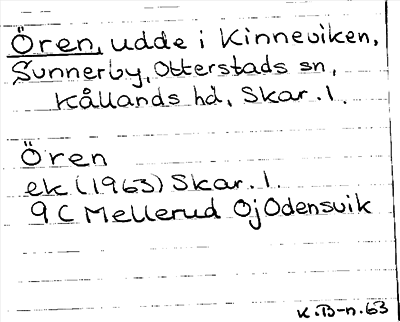 Ören, udde i Kinneviken,
Sunnerby, Otterstads sn,
Kållands hd, Skar. l.
Ören
ek (1963) Skar. l.
9 C Mellerud Öj Odensvik
K. B-n. 63